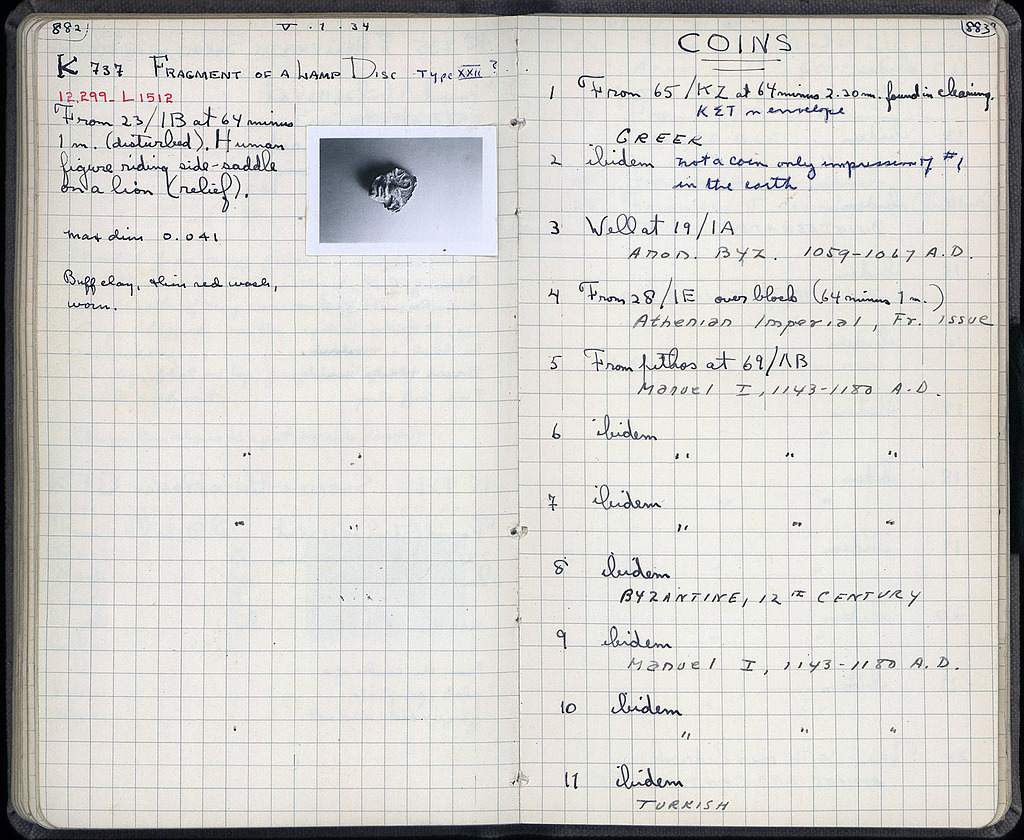 882
V . 1 . 34
K 737 FRAGMENT OF A LAMP DISC TYPE XXII ?
12,299_L1512
From 23/IB at 64 minus
1 m. (disturbed). Human
figure riding side-saddle
on a lion (relief).
max dim 0.041
Buff clay, thin red wash,
worn.
883
COINS
1 From 65/KZ at 64 minus 2.20 m. found in cleaning.
KET in envelope
GREEK
2 ibidem not a coin only impression of #1
in the earth
3 Well at 19/IA
ANON. BYZ. 1059-1067 A.D.
4 From 28/IE over block (64 minus 1 m.)
Athenian Imperial, Fr. issue
5 From pithos at 69/ΛB
Manuel I, 1143-1180 A.D.
6 ibidem
" " "
7 ibidem
" " "
8 ibidem
BYZANTINE, 12TH CENTURY
9 ibidem
Manuel I, 1143-1180 A.D.
10 ibidem
" " "
11 ibidem
TURKISH